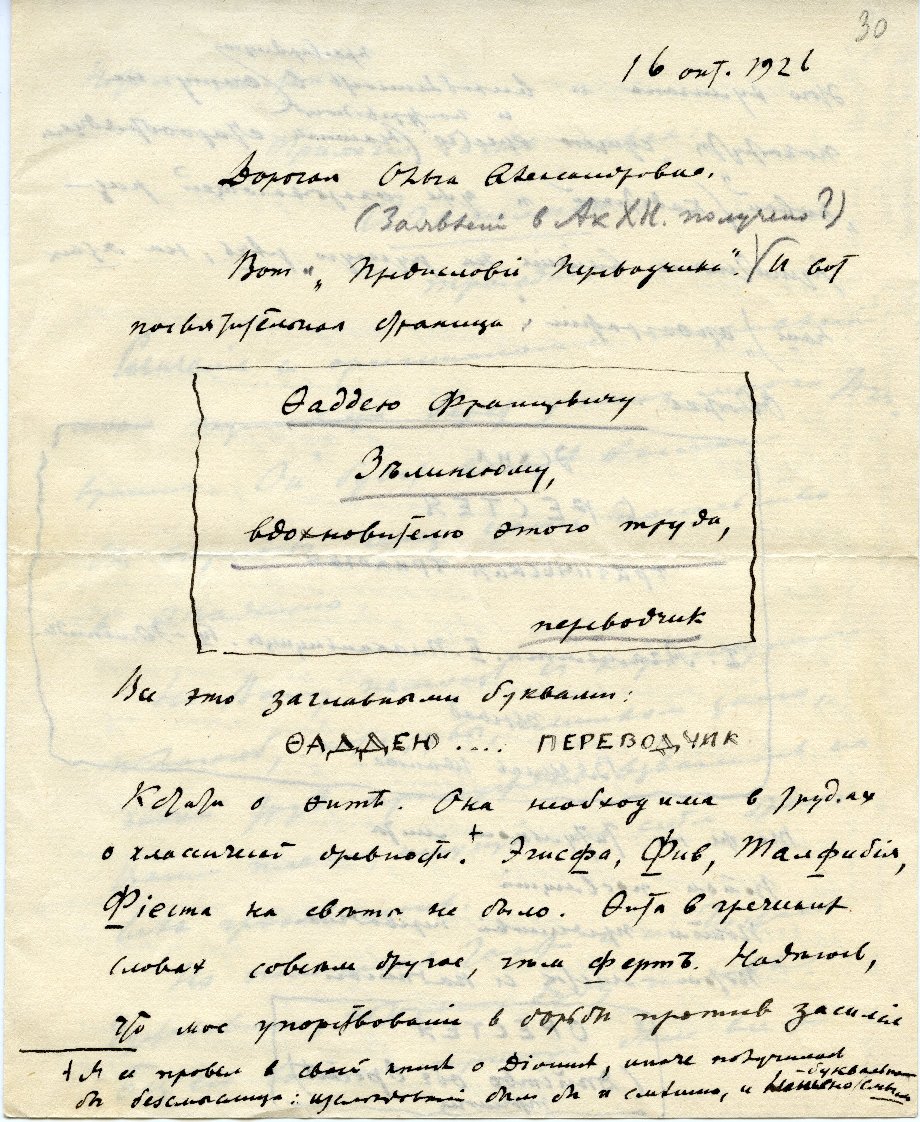 30
16 окт. 1926
Дорогая Ольга Александровна.
(Заявленiе в Ак ХН. получено?)
Вот и „Предисловiе Переводчика". И вот
посвятительная страница:
Ѳаддею Францевичу
Зѣлинскому,
вдохновителю этого труда,
переводчик
Все это заглавными буквами:
ѲАДДЕЮ .... ПЕРЕВОДЧИК
Кстати о ѳитѣ. Она необходима в трудах
о классической древности.+ Эгисфа, Фив, Талфибiя,
Фiеста на свѣтѣ не было. Ѳита в греческих
словах совсѣм другое, чѣм фертъ. Надѣюсь,
что мое упорствованiе в борьбѣ против засилiя
+ Я ее провел в своей книгѣ о Дiонисѣ, иначе получилась
бы безсмыслица: изслѣдованiе было бы и смѣшно, и буквально